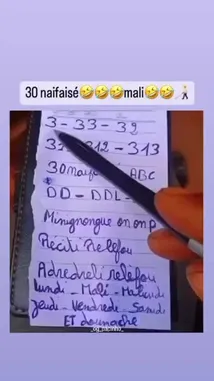 30 naifaisé🤣🤣🤣mali🤣🤣
3 - 33 - 32
312 - 313
30 ABC
DD - DDL -
Minignongue on onp
Récité Relefou
Adredreli relefou
lundi - Mali -
jeudi - Vendredi - Samedi
ET doumache